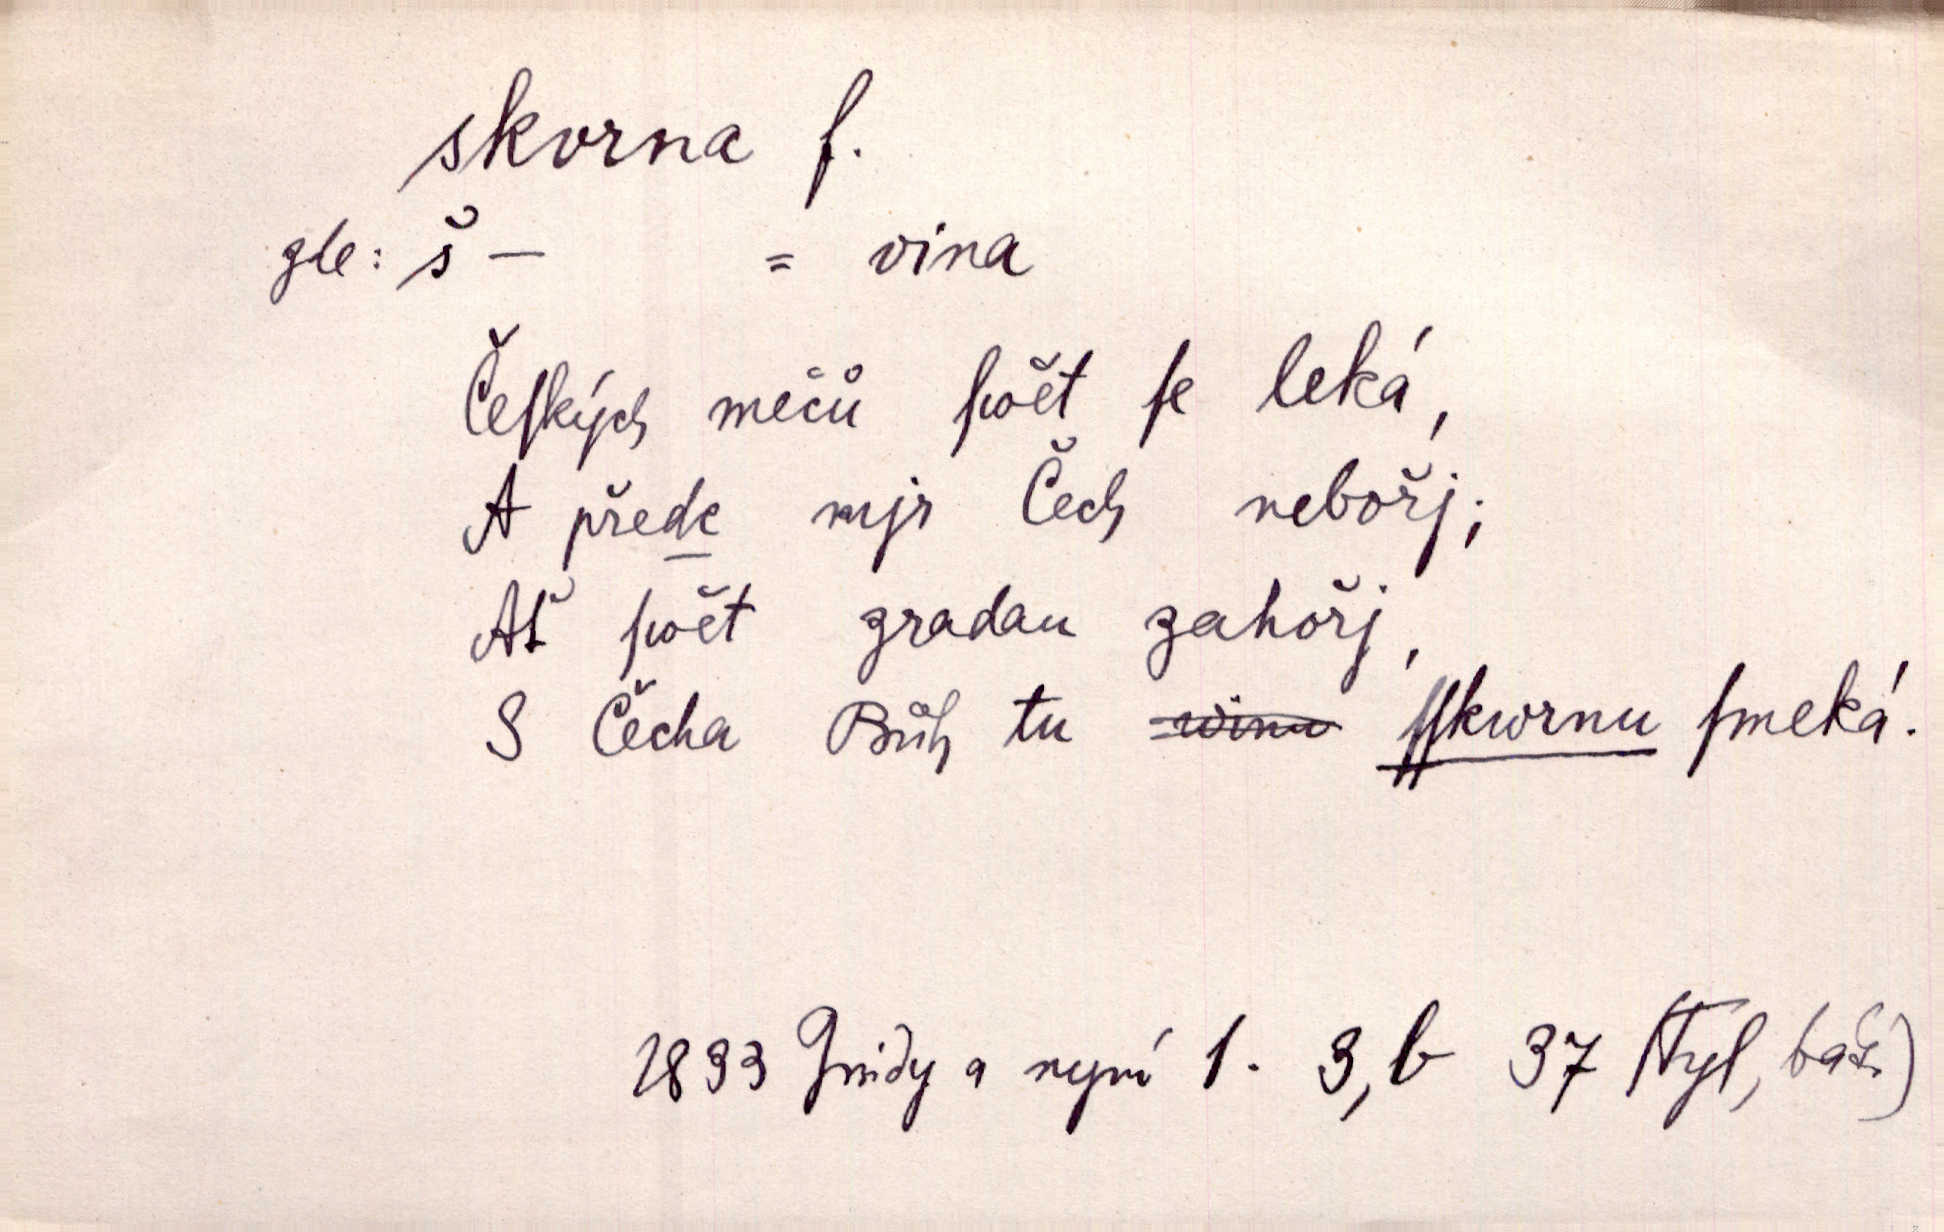 skvrna f.
zde: š — = vina
Čeſkých mečů ſwět ſe leká,
A předc mjr Čech nebořj;
Ať ſwět zradau zahořj,
S Čecha Bůh tu winu ſſkwrnu ſmeká.
1833 Jindy a nyní 1. 3, b 37 (Tyl, bás.)